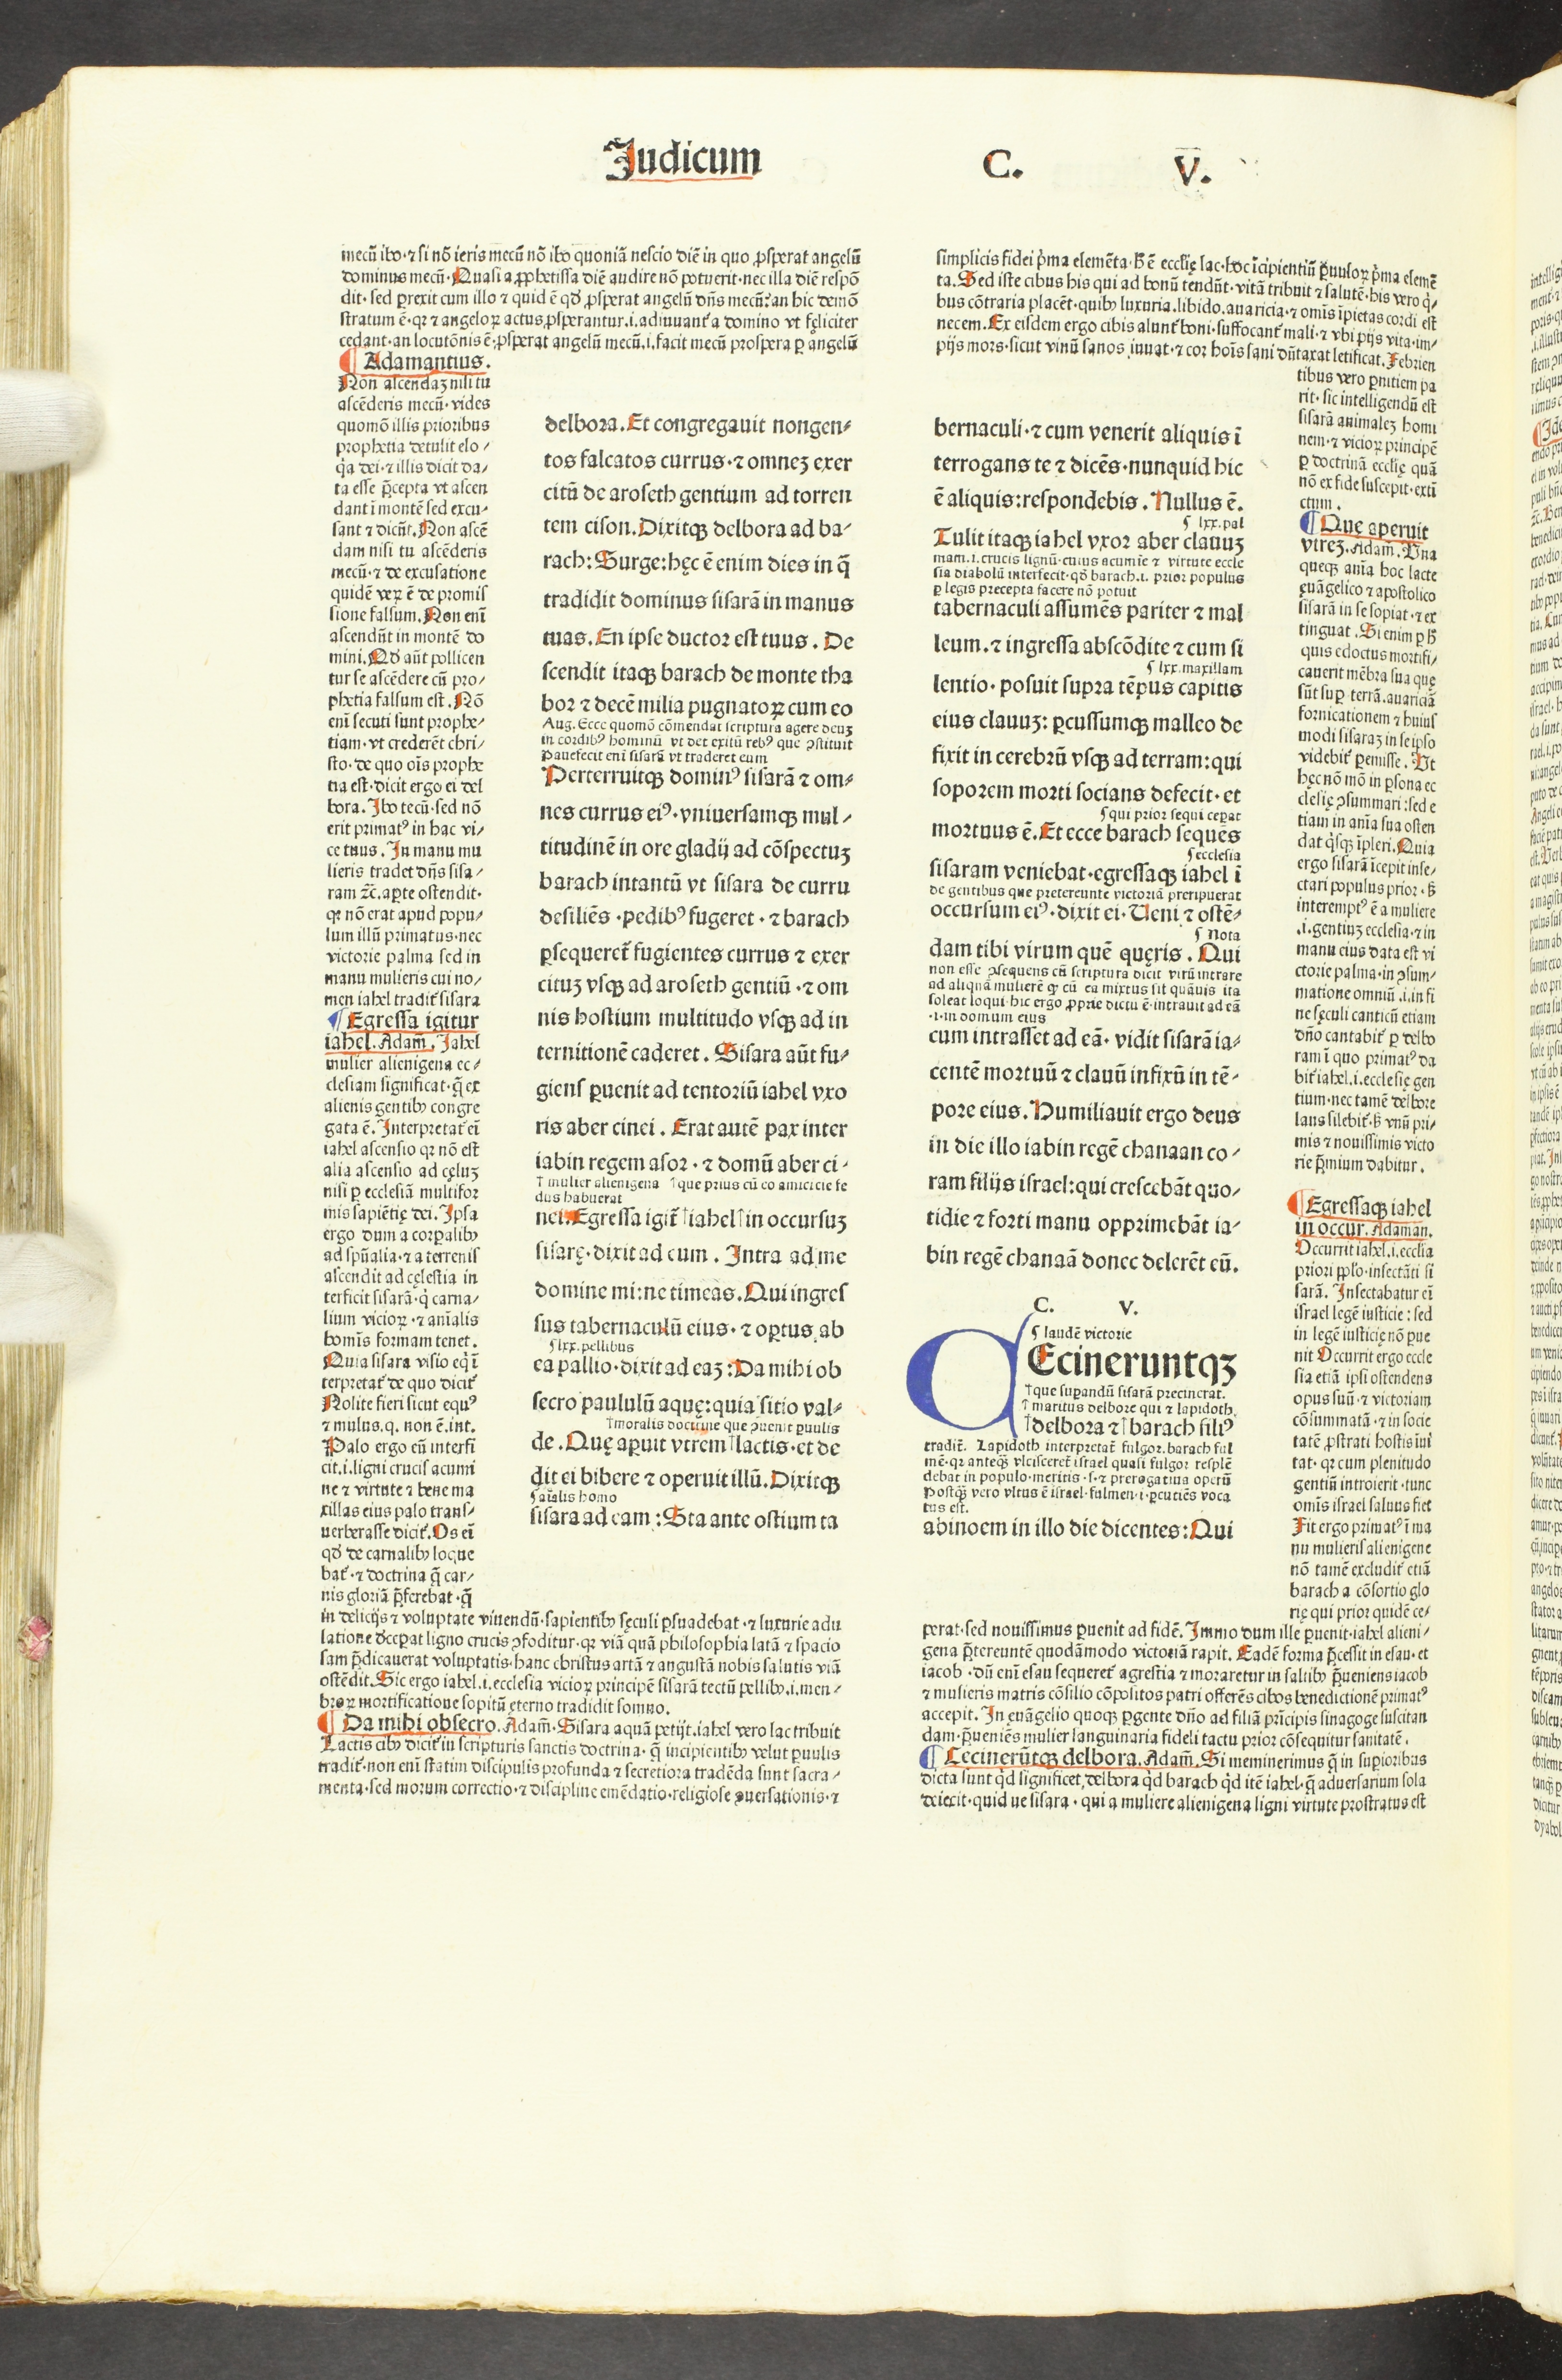 Judicum C. V.
mecū ibo·⁊ si nō ieris mecū nō ibo quoniā nescio diē in quo ꝓsperat angelū
dominus mecū·Quasi a ꝓphetissa diē audire nō potuerit·nec illa diē respō
dit·sed ꝑrexit cum illo ⁊ quid ē qd̄ ꝓsperat angelū dn̄s mecū?an hic demō
stratum ē·qꝛ ⁊ angeloꝝ actus ꝓsperantur.i.adiuuant̄ a domino vt fęliciter
cedant·an locutōnis ē·ꝓsperat angelū mecū.i.facit mecū prospera ꝑ angelū
¶ Adamantius.
Non ascendaꝫ nisi tu
ascēderis mecū·vides
quomō illis prioribus
prophetia detulit elo/
q̇a dei·⁊ illis dicit da/
ta esse p̄cepta vt ascen
dant ī montē sed excu/
sant ⁊ dicūt.Non ascē
dam nisi tu ascēderis
mecū·⁊ de excusatione
quidē veꝝ ē de promis
sione falsum.Non enī
ascendūt in montē do
mini.Qd̄ aūt pollicen
tur se ascēdere cū pro/
phetia falsum est.Nō
enī secuti sunt prophe/
tiam·vt crederēt chri/
sto·de quo oīs prophe
tia est·dicit ergo ei del
bora.Ibo tecū·sed nō
erit primatꝰ in hac vi/
ce tuus.In manu mu
lieris tradet dn̄s sisa/
ram ⁊c̄.aꝑte ostendit·
qꝛ nō erat apud popu/
lum illū primatus·nec
victorie palma sed in
manu mulieris cui no/
men iahel tradit̄ sisara
¶ Egressa igitur
iahel.Adam̄.Iahel
mulier alienigena ec/
clesiam significat·q̄ ex
alienis gentibꝫ congre
gata ē.Interpretat̄ eī
iahel ascensio qꝛ nō est
alia ascensio ad cęluꝫ
nisi ꝑ ecclesiā multifor
mis sapiētię dei.Ipsa
ergo dum a corꝑalibꝫ
ad spūalia·⁊ a terrenis
ascendit ad cęlestia in
terficit sisarā·q̇ carna/
lium vicioꝝ·⁊ aīalis
homīs formam tenet.
Quia sisara visio eq̇ ī
terpretat̄ de quo dicit̄
Nolite fieri sicut equꝰ
⁊ mulus.q. non ē.int.
Palo ergo eū interfi
cit.i.ligni crucis acumi
ne ⁊ virtute ⁊ bene ma
xillas eius palo trans/
uerberasse dicit̄.Os eī
qd̄ de carnalibꝫ loque
bat̄·⁊ doctrina q̄ car/
nis gloriā p̄ferebat·q̄
in delicijs ⁊ voluptate viuendū·sapientibꝫ sęculi ꝑsuadebat·⁊ luxurie adu
latione deceꝑat ligno crucis ꝯfoditur·qꝛ viā quā philosophia latā ⁊ spacio
sam p̄dicauerat voluptatis·hanc christus artā ⁊ angustā nobis salutis viā
ostēdit.Sic ergo iahel.i.ecclesia vicioꝝ principē sisarā tectū pellibꝫ.i.men/
broꝝ mortificatione sopitū ęterno tradidit somno.
¶ Da mihi obsecro.Adam̄.Sisara aquā petijt.iahel vero lac tribuit
Lactis cibꝫ dicit̄ in scripturis sanctis doctrina·q̄ incipientibꝫ velut ꝑuulis
tradit̄·non enī statim discipulis profunda ⁊ secretiora tradēda sunt sacra/
menta·sed morum correctio·⁊ discipline emēdatio·religiose ꝯuersationis·⁊
delbora.Et congregauit nongen/
tos falcatos currus·⁊ omneꝫ exer
citū de aroseth gentium ad torren
tem cison.Dixitqꝫ delbora ad ba/
rach:Surge:hęc ē enim dies in q̄
tradidit dominus sisarā in manus
tuas.En ipse ductor est tuus.De
scendit itaqꝫ barach de monte tha
bor ⁊ decē milia pugnatoꝝ cum eo
Aug.Ecce quomō cōmendat scriptura agere deuꝫ
in cordibꝰ hominū vt det exitū rebꝰ que ꝯstituit
Pauefecit enī sisarā vt traderet eum
Perterruitqꝫ dominꝰ sisarā ⁊ om/
nes currus eiꝰ·vniuersamqꝫ mul/
titudinē in ore gladij ad cōspectuꝫ
barach intantū vt sisara de curru
desiliēs·pedibꝰ fugeret·⁊ barach
ꝑsequeret̄ fugientes currus ⁊ exer
cituꝫ vsqꝫ ad aroseth gentiū·⁊ om
nis hostium multitudo vsqꝫ ad in
ternitionē caderet.Sisara aūt fu/
giens ꝑuenit ad tentoriū iahel vxo
ris aber cinei.Erat autē pax inter
iabin regem asor·⁊ domū aber ci/
† mulier alienigena † que prius cū eo amicicie fe
dus habuerat
nei.Egressa igit̄ †iahel† in occursuꝫ
sisarę·dixit ad eum.Intra ad me
domine mi:ne timeas.Qui ingres
sus tabernaculū eius·⁊ oꝑtus ab
¶ lxx.pellibus
ea pallio·dixit ad eaꝫ:Da mihi ob
secro paululū aquę:quia sitio val/
†moralis doctrine que ꝯuenit ꝑuulis
de.Quę aꝑuit vtrem †lactis·et de
dit ei bibere ⁊ operuit illū.Dixitqꝫ
¶ aīalis homo
sisara ad eam:Sta ante ostium ta
simplicis fidei p̄ma elemēta·H̄ ē ecclię lac·hoc īcipientiū ꝑuuloꝝ p̄ma elemē
ta.Sed iste cibus his qui ad bonū tendūt·vitā tribuit ⁊ salutē·his vero q̇/
bus cōtraria placēt·quibꝫ luxuria.libido.auaricia·⁊ omīs īpietas cordi est
necem.Ex eisdem ergo cibis alunt̄ boni·suffocant̄ mali·⁊ vbi pijs vita·im/
pijs mors·sicut vinū sanos iuuat·⁊ cor hoīs sani dūtaxat letificat.Febrien
tibus vero ꝑnitiem pa
rit·sic intelligendū est
sisarā animaleꝫ homi
nem·⁊ vicioꝝ principē
ꝑ doctrinā ecclię quā
nō ex fide suscepit·extī
ctum.
¶ Que aperuit
vtreꝫ.Adam̄.Vna
queqꝫ aīa hoc lacte
euāgelico ⁊ apostolico
sisarā in se sopiat·⁊ ex
tinguat.Si enim ꝑ h̄
quis edoctus mortifi/
cauerit mēbra sua quę
sūt suꝑ terrā.auariciā
fornicationem ⁊ huius
modi sisaraꝫ in se ipso
videbit̄ ꝑemisse.Vt
hęc nō mō in ꝑsona ec
clesię ꝯsummari:sed e
tiam in aīa sua osten
dat q̇sqꝫ īpleri.Quia
ergo sisarā īcepit inse/
ctari populus prior·h̄
interemptꝰ ē a muliere
.i.gentiuꝫ ecclesia·⁊ in
manu eius data est vi
ctorie palma·in ꝯsum/
matione omniū.i.in fi
ne sęculi canticū etiam
dn̄o cantabit̄ ꝑ delbo
ram ī quo primatꝰ da
bit̄ iahel.i.ecclesię gen
tium·nec tamē delbore
laus silebit̄·h̄ vnū pri/
mis ⁊ nouissimis victo
rie p̄mium dabitur.
¶ Egressaqꝫ iahel
in occur.Adaman.
Occurrit iahel.i.ecclīa
priori pplo·insectāti si
sarā.Insectabatur eī
israel legē iusticie:sed
in legē iusticię nō ꝑue
nit Occurrit ergo eccle
sia etiā ipsi ostendens
opus suū·⁊ victoriam
cōsummatā·⁊ in socie
tatē ꝓstrati hostis īui
tat·qꝛ cum plenitudo
gentiū introierit·tunc
omīs israel saluus fiet
Fit ergo primatꝰ ī ma
nu mulieris alienigene
nō tamē excludit̄ etiā
barach a cōsortio glo
rię qui prior quidē ce/
perat·sed nouissimus ꝑuenit ad fidē.Immo dum ille ꝑuenit·iahel alieni/
gena p̄tereuntē quodāmodo victoriā rapit.Eadē forma p̄cessit in esau·et
iacob·dū enī esau sequeret̄ agrestia ⁊ moraretur in saltibꝫ p̄ueniens iacob
⁊ mulieris matris cōsilio cōpositos patri offerēs cibos benedictionē primatꝰ
accepit.In euāgelio quoqꝫ ꝑgente dn̄o ad filiā p̄ncipis sinagoge suscitan
dam·p̄ueniēs mulier sanguinaria fideli tactu prior cōsequitur sanitatē.
¶ Cecinerūtqꝫ delbora.Adam̄.Si meminerimus q̄ in suꝑioribus
dicta sunt qd̄ significet,delbora qd̄ barach qd̄ itē iahel·q̄ aduersarium sola
deiecit·quid ue sisara·qui a muliere alienigena ligni virtute prostratus est
bernaculi·⁊ cum venerit aliquis ī
terrogans te ⁊ dicēs·nunquid hic
ē aliquis:respondebis.Nullus ē.
¶ lxx.pal
Tulit itaqꝫ iahel vxor aber clauuꝫ
mam.i.crucis lignū·cuius acumie ⁊ virtute eccle
sia diabolū interfecit·qd̄ barach.i. prior populus
ꝑ legis precepta facere nō potuit
tabernaculi assumēs pariter ⁊ mal
leum.⁊ ingressa abscōdite ⁊ cum si
¶ lxx.maxillam
lentio·posuit supra tēpus capitis
eius clauuꝫ:ꝑcussumqꝫ malleo de
fixit in cerebrū vsqꝫ ad terram:qui
soporem morti socians defecit·et
¶ qui prior sequi ceꝑat
mortuus ē.Et ecce barach sequēs
¶ ecclesia
sisaram veniebat·egressaqꝫ iahel ī
de gentibus que pretereunte victoriā preripuerat
occursum eiꝰ·dixit ei·Ueni ⁊ ostē/
¶ Nota
dam tibi virum quē quęris.Qui
non esse ꝯsequens cū scriptura dicit virū intrare
ad aliquā mulierē qꝫ cū ea mixtus sit quāuis ita
soleat loqui·hic ergo ꝓprie dictū ē·intrauit ad eā
·i·in domum eius
cum intrasset ad eā·vidit sisarā ia/
centē mortuū ⁊ clauū infixū in tē/
pore eius.Humiliauit ergo deus
in die illo iabin regē chanaan co/
ram filijs israel:qui crescebāt quo/
tidie ⁊ forti manu opprimebāt ia/
bin regē chanaā donec delerēt eū.
C. V.
¶ laudē victorie
CEcineruntqꝫ
†que suꝑandū sisarā precinerat.
† maritus delbore qui ⁊ lapidoth.
†delbora ⁊† barach filiꝰ
tradit̄. Lapidoth interpretat̄ fulgor.barach ful
mē·qꝛ anteqꝫ vlcisceret̄ israel quasi fulgor resplē
debat in populo·meritis·s·⁊ prerogatiua operū
Postqꝫ vero vltus ē israel·fulmen·i·ꝑcutiēs voca
tus est.
abinoem in illo die dicentes:Qui